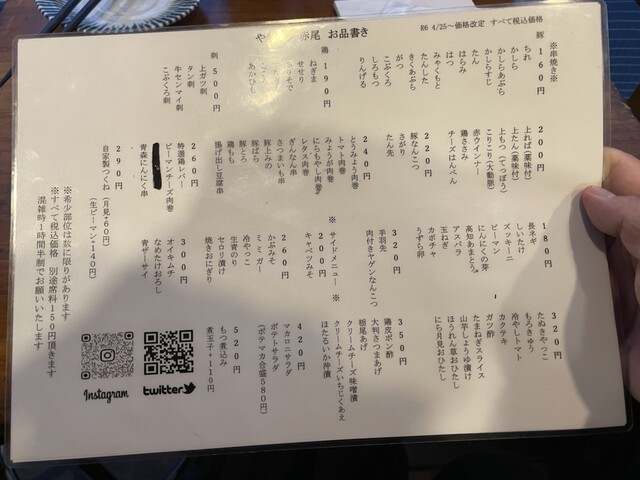 お品書き
R6 4/25〜価格改定 すべて税込価格
※串焼き※
豚 160円
ちれ
かしら
かしらあぶら
かしらすじ
たん
はらみ
はつ
みゃくもと
たんした
きくあぶら
がつ
こぶくろ
しろもつ
りんげる
鶏 190円
ねぎま
せせり
刺 500円
上ガツ刺
タン刺
牛センマイ刺
こぶくろ刺
200円
上ればに(薬味付)
上たん(薬味付)
上もつ(てっぽう)
こりこり(大動脈)
赤ウインナー
鶏ささみ
チーズはんぺん
220円
豚なんこつ
さがり
たん先
240円
とうみょう肉巻
トマト肉巻
みょうが肉巻
にらもやし肉巻
レタス肉巻
ぎんなん串
さつまいも串
豚上みの
豚ばら
豚とろ
鶏もも
揚げ出し豆腐串
260円
特選鶏レバー
ピーマンチーズ肉巻
青森にんにく串
290円
自家製つくね (月見+60円)
(生ピーマン+140円)
180円
長ネギ
しいたけ
ズッキーニ
ピーマン
にんにくの芽
高知あまとう
アスパラ
玉ねぎ
カボチャ
うずら卵
320円
手羽先
肉付きヤゲンなんこつ
※ サイドメニュー ※
200円
キャベツみそ
260円
かぶみそ
ミミガー
冷やっこ
生青のり
セロリ漬け
焼きおにぎり
300円
オイキムチ
なめたけおろし
青ザーサイ
320円
たぬきやっこ
もろきゅう
冷やしトマト
カクテキ
ガツ酢
たまねぎスライス
山芋しょうゆ漬け
ほうれん草おひたし
にら月見おひたし
350円
鶏皮ポン酢
大判さつまあげ
栃尾あげ
クリームチーズ味噌漬
クリームチーズいちじくあえ
ほたるいか沖漬
420円
マカロニサラダ
ポテトサラダ
(ポテマカ合盛580円)
520円
もつ煮込み
煮玉子+110円
※希少部位は数に限りがあります
※すべて税込価格 別途席料150円頂きます
混雑時1時間半制でお願いいたします
Instagram
twitter